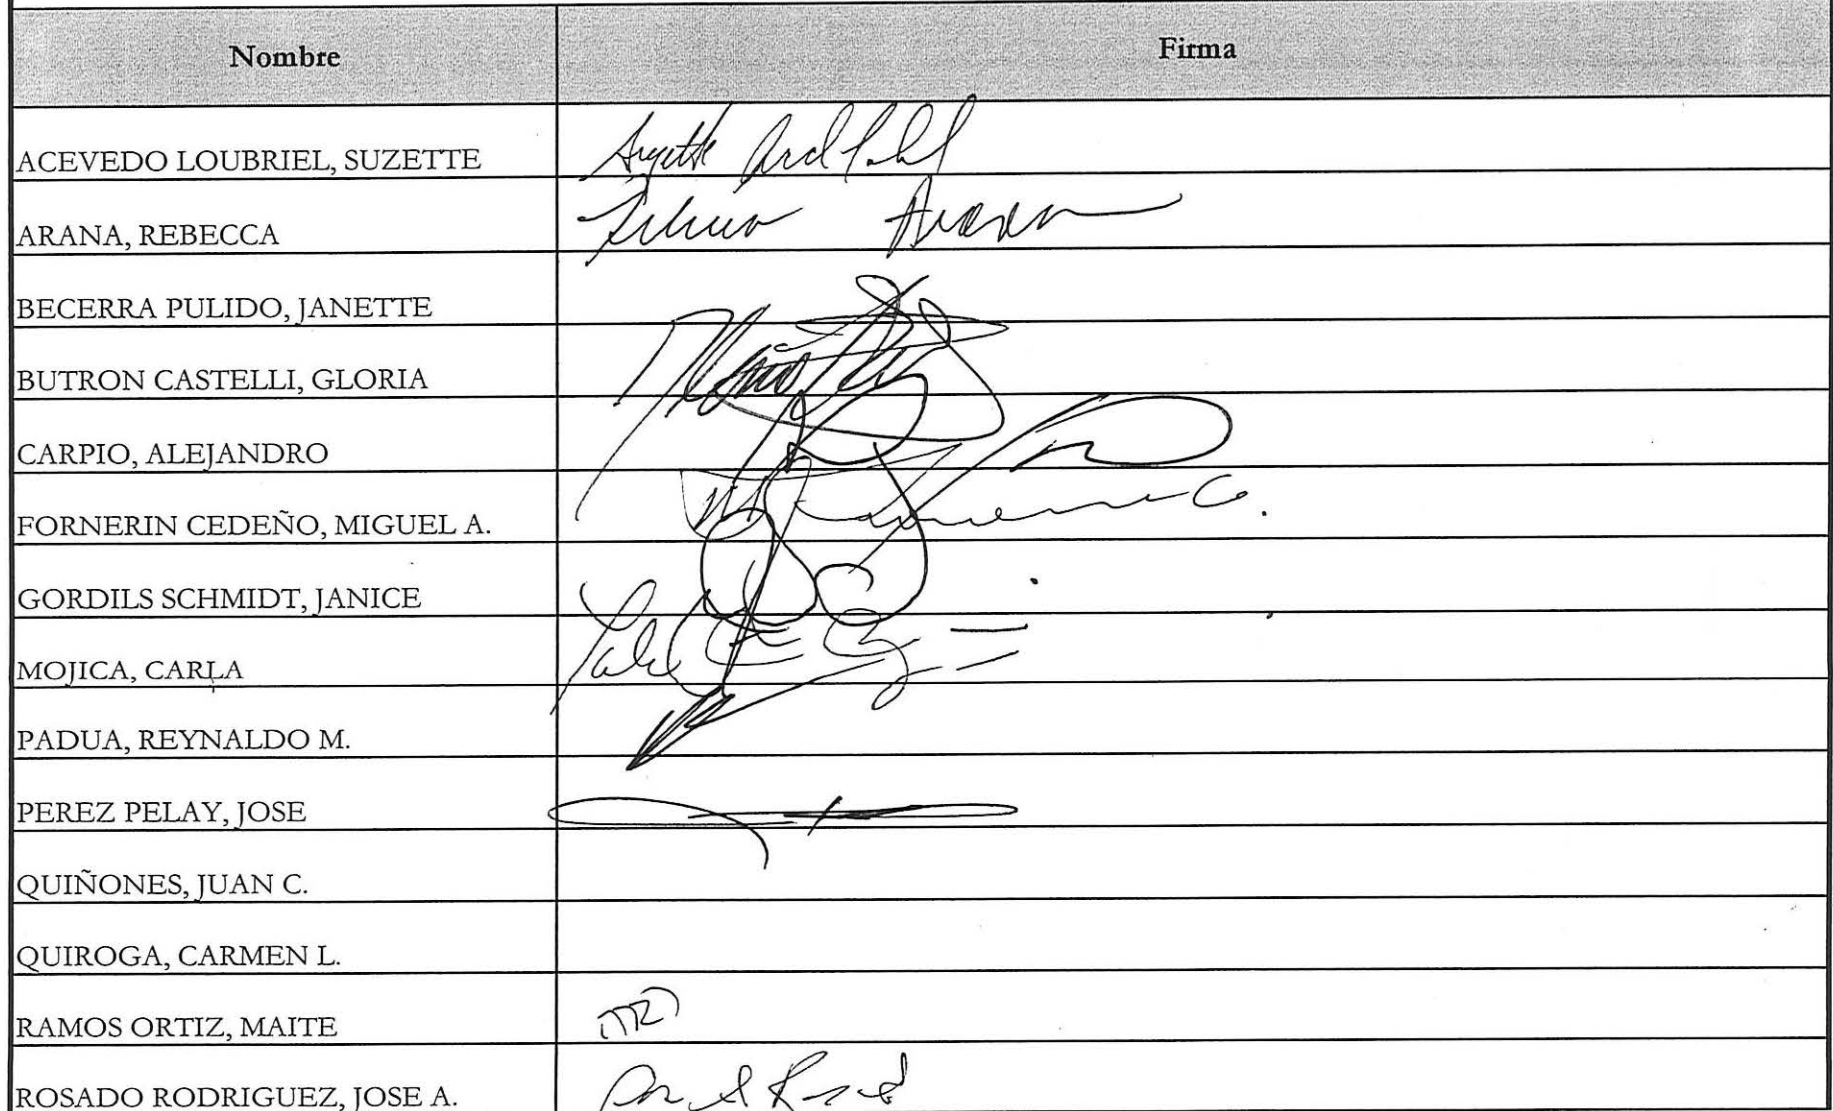 Nombre Firma
ACEVEDO LOUBRIEL, SUZETTE Suzette
ARANA, REBECCA Arana
BECERRA PULIDO, JANETTE
BUTRON CASTELLI, GLORIA
CARPIO, ALEJANDRO
FORNERIN CEDEÑO, MIGUEL A.
GORDILS SCHMIDT, JANICE
MOJICA, CARLA
PADUA, REYNALDO M.
PEREZ PELAY, JOSE
QUIÑONES, JUAN C.
QUIROGA, CARMEN L.
RAMOS ORTIZ, MAITE
ROSADO RODRIGUEZ, JOSE A.